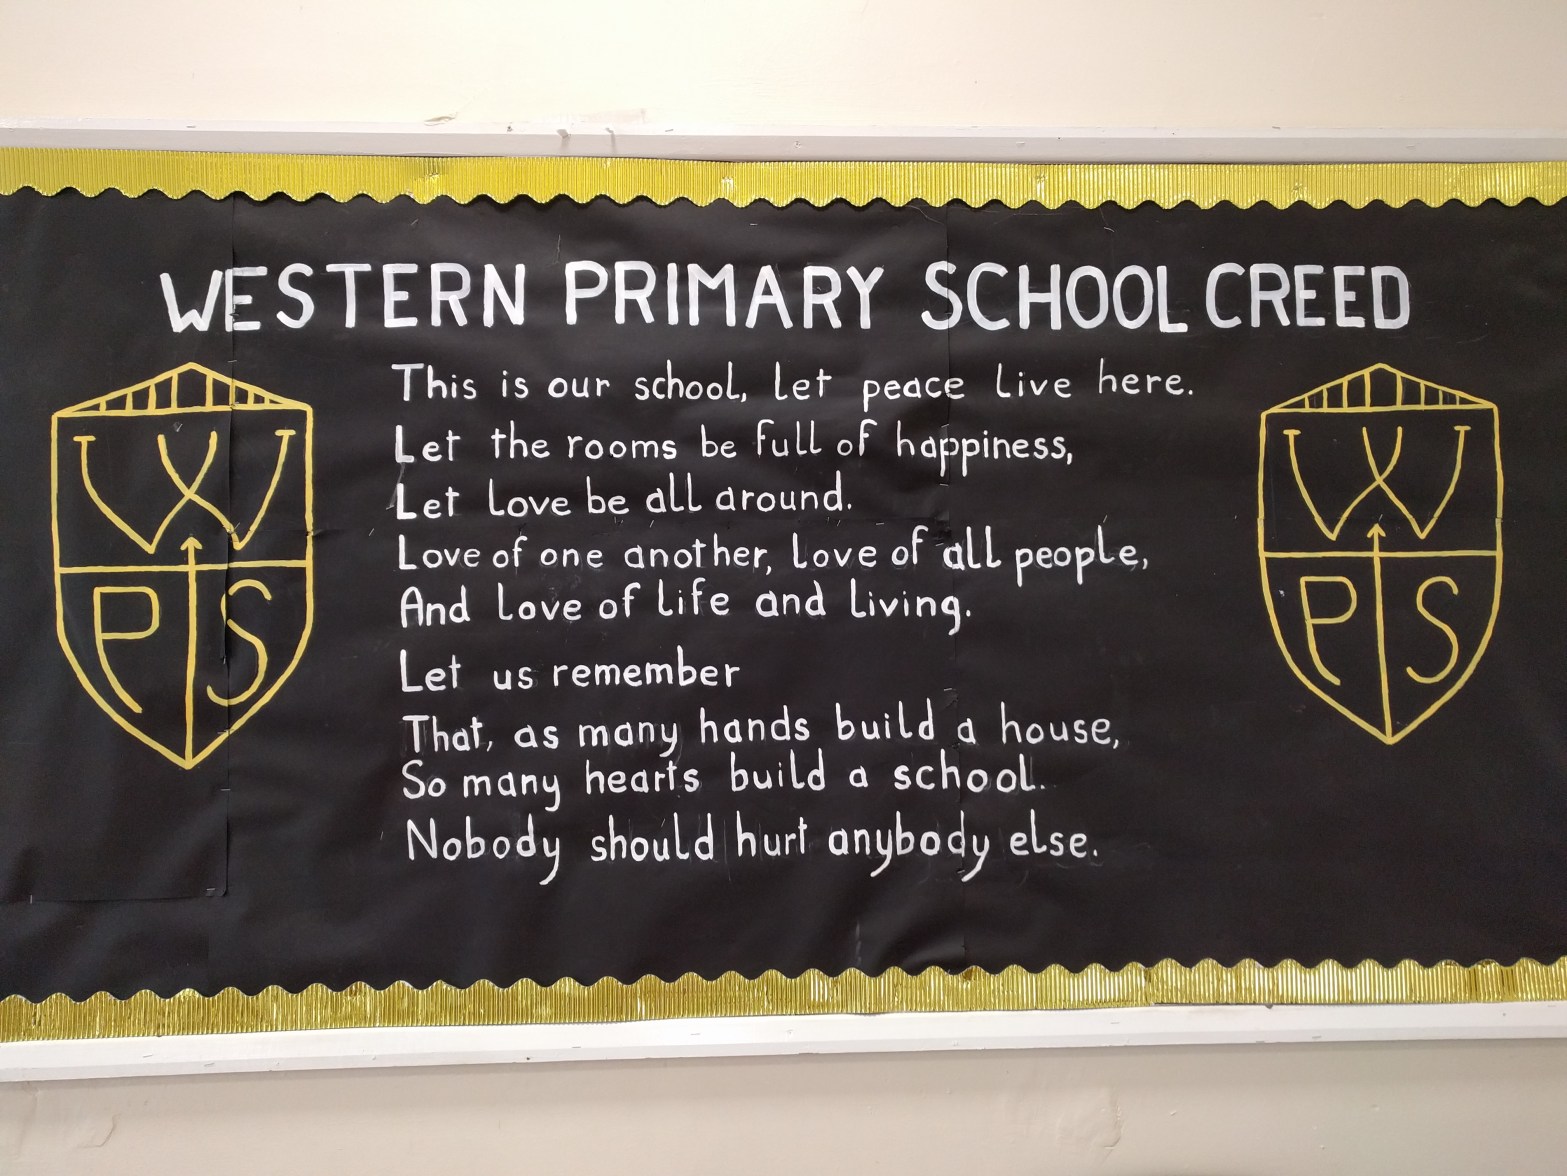 WESTERN PRIMARY SCHOOL CREED
This is our school, let peace live here.
Let the rooms be full of happiness,
Let love be all around.
Love of one another, love of all people,
And love of life and living.
Let us remember
That, as many hands build a house,
So many hearts build a school.
Nobody should hurt anybody else.
W
P S
W
P S